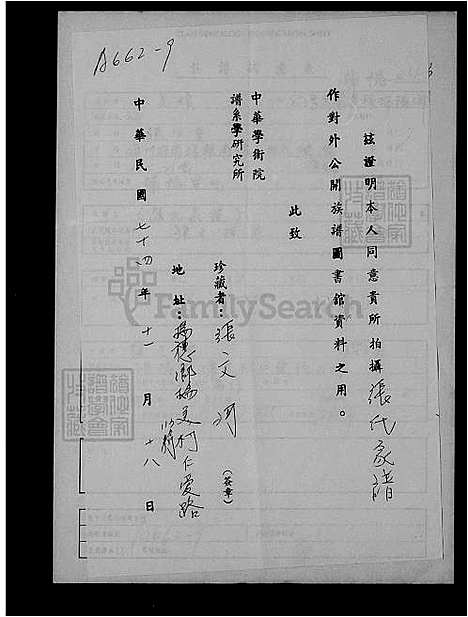 A662-9
茲證明本人同意貴所拍攝張氏家譜
作對外公開族譜圖書館資料之用。
此致
中華學術院
譜系學研究所
珍藏者：張文 (簽章)
地址：楊美村仁愛路
中華民國七十四年十一月十八日
FamilySearch